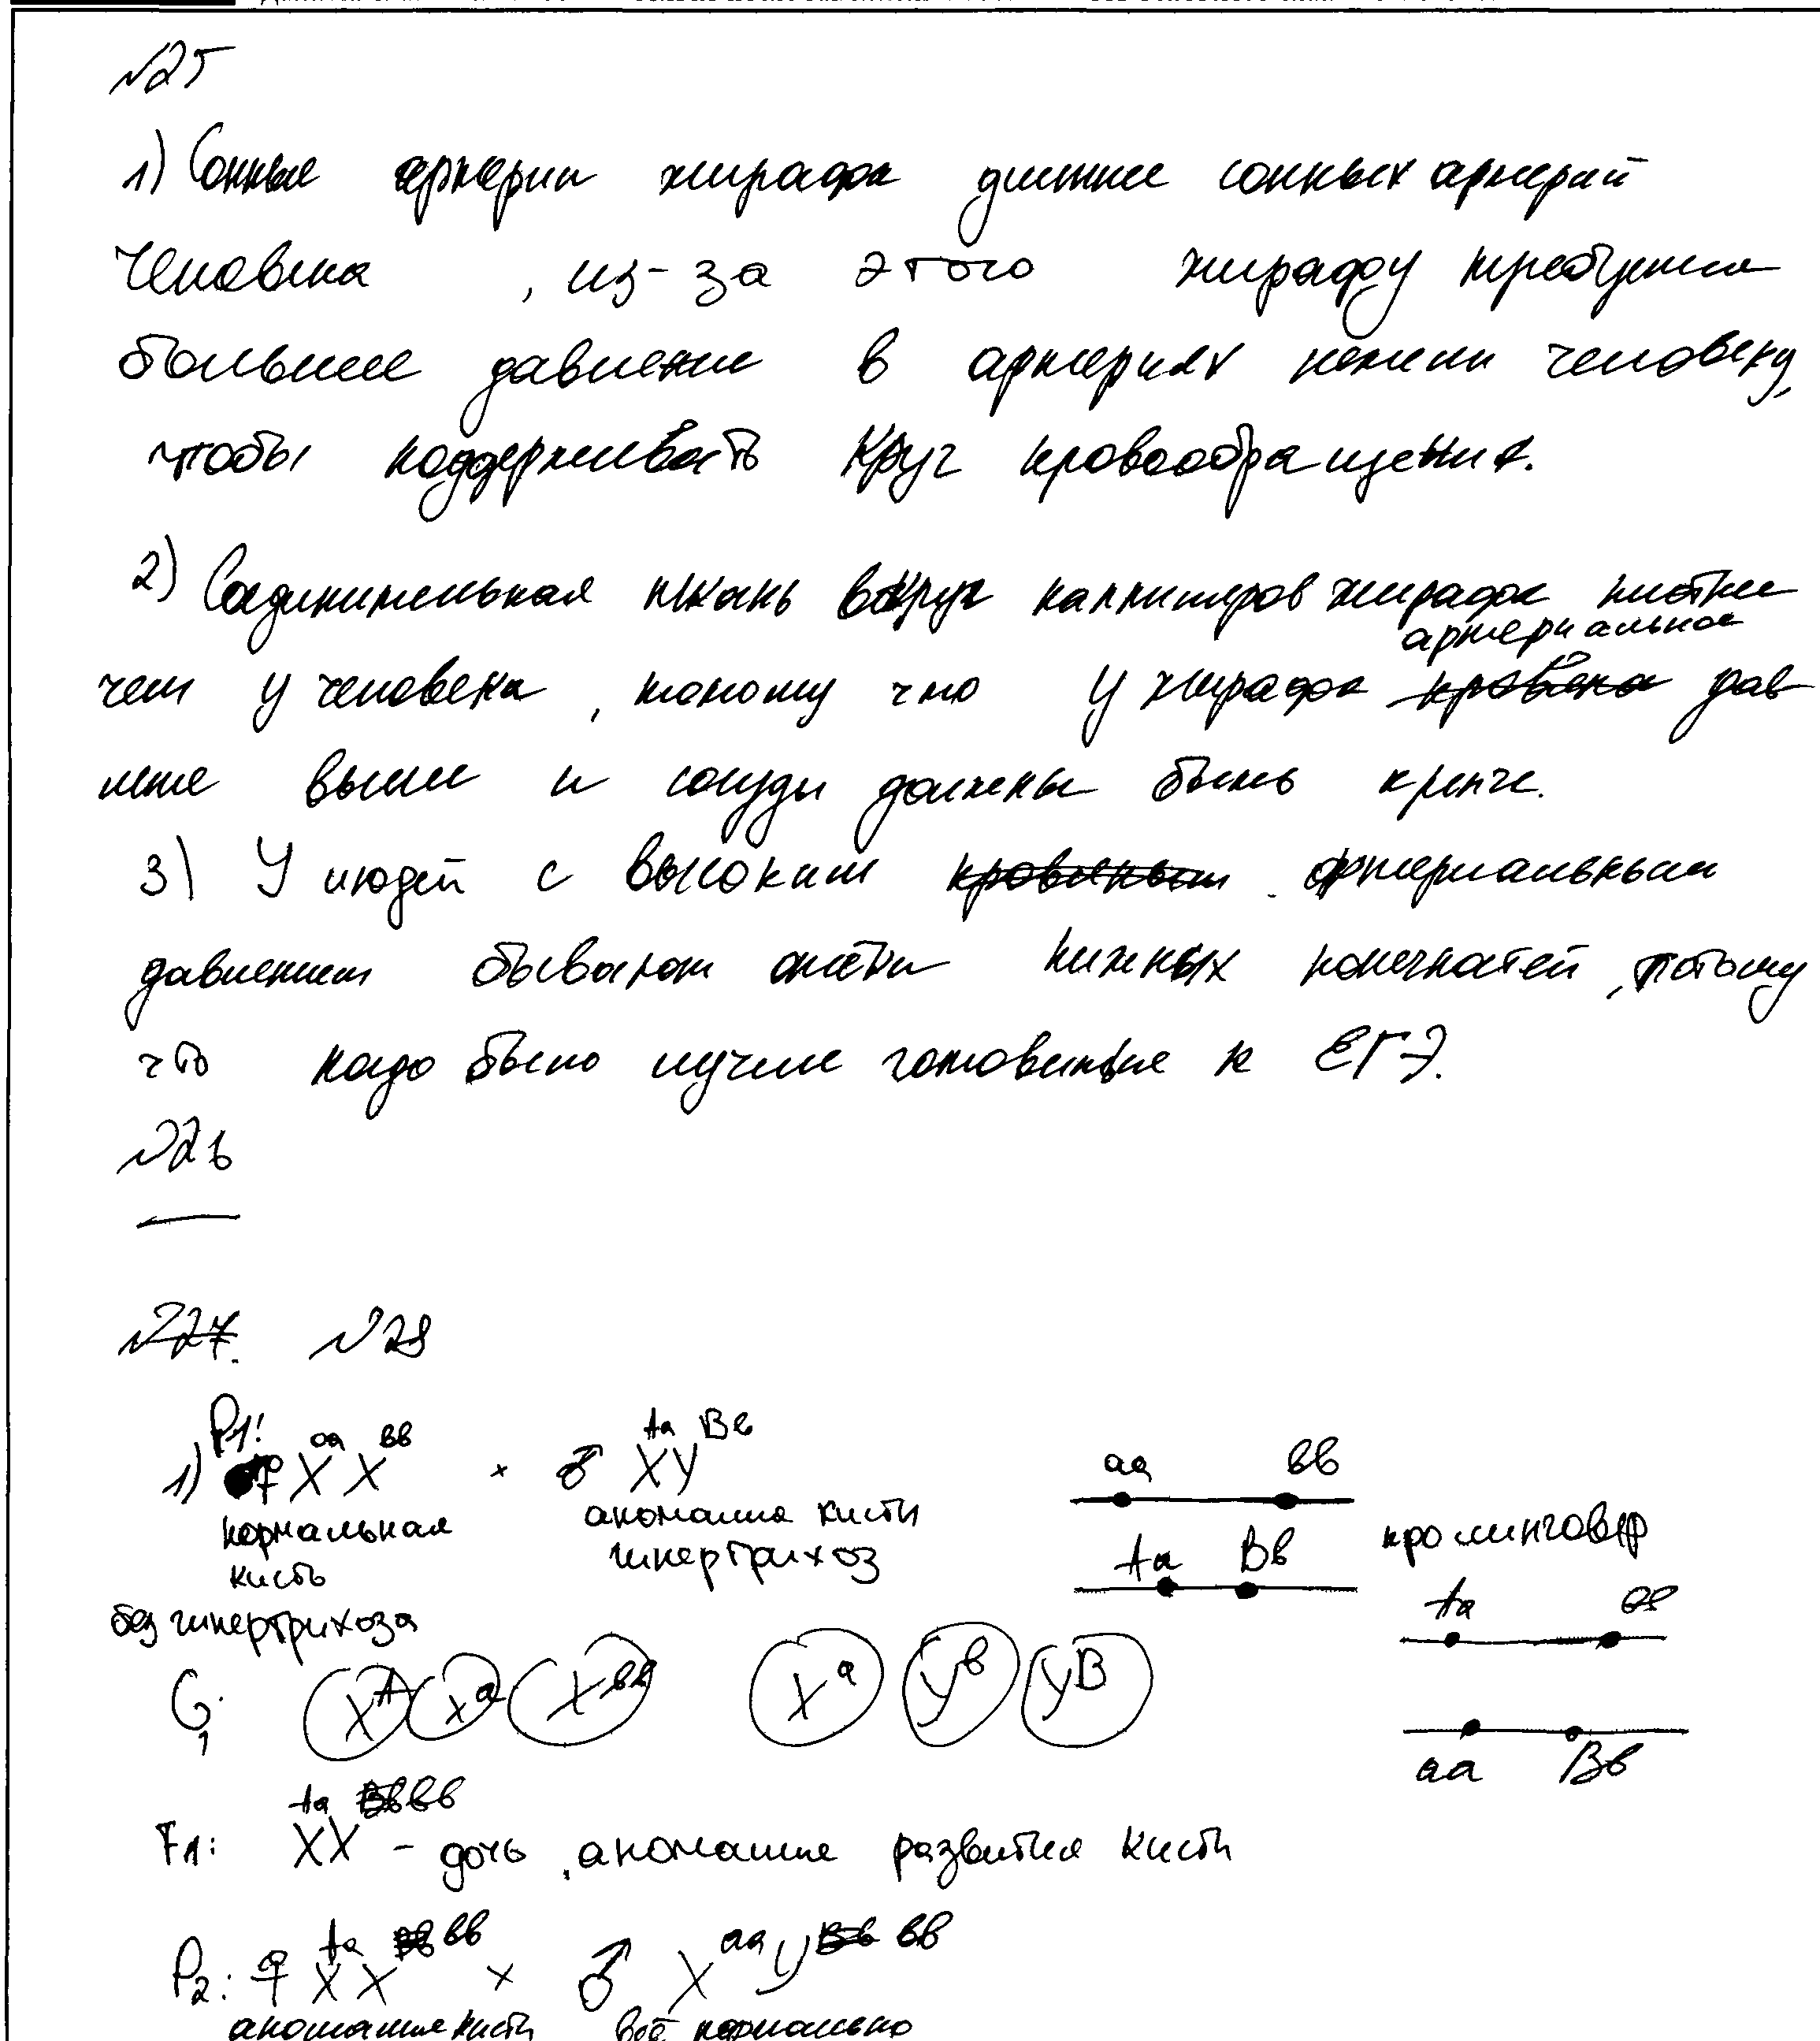 №25
1) Сонные артерии жирафа длиннее сонных артерий
человека , из-за этого жирафу требуется
большее давление в артериях нежели человеку,
чтобы поддерживать круг кровообращения.
2) Соединительная ткань вокруг капилляров жирафа плотнее
артериальное
чем у человека , потому что у жирафа кровяное дав
ление выше и сосуды должны быть крепче.
3) У людей с высоким кровяным артериальным
давлением бывают отёки нижных конечнотей , потому
что надо было лучше готовиться к ЕГЭ.
№26
—
№27. №28
P1:
1) ♀ X^aa X^вв × ♂ X^Aa Y^Вв
нормальная кисть без гипертрихоза
аномалия кисти гипертрихоз
aa вв
Aa Вв
кролинговер
Aa вв
aa Вв
G1: X^A X^a X^вв X^a Y^в Y^B
F1: X^Aa X^вв – дочь , аномалия развития кисти
P2: ♀ X^Aa X^вв × ♂ X^aa Y^вв
аномалия кисти всё нормально